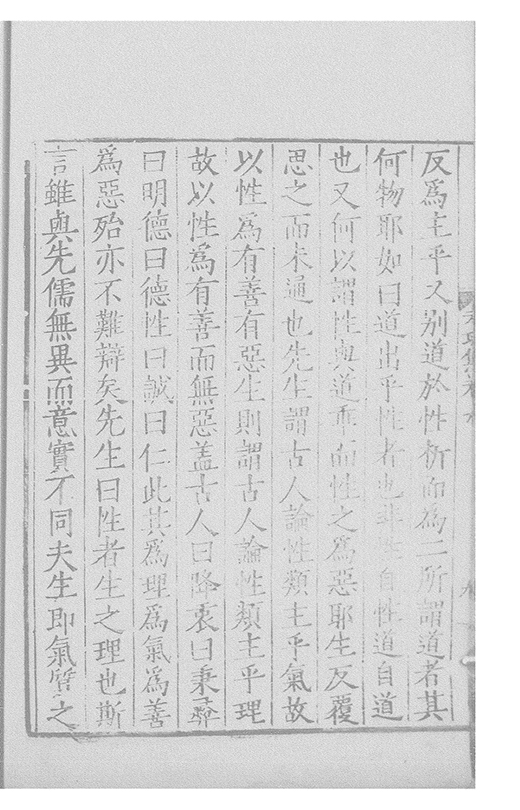 反為主乎又别道於性析而為二所謂道者其
何物耶如曰道出乎性者也非性自性道自道
也又何以謂性與道乖而性之為惡耶生反覆
思之而未通也先生謂古人論性類主乎氣故
以性為有善有惡生則謂古人論性類主乎理
故以性為有善而無惡盖古人曰降衷曰秉彞
曰明德曰德性曰誠曰仁此其為理為氣為善
為惡殆亦不難辯矣先生曰性者生之理也斯
言雖與先儒無異而意實不同夫生即氣質之